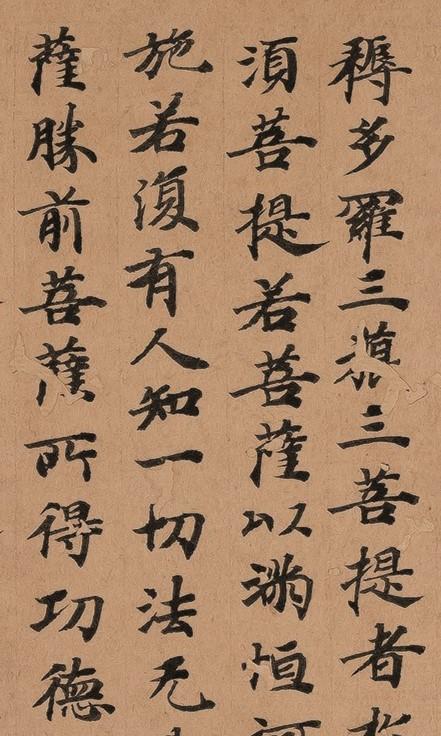 耨多羅三藐三菩提者
須菩提若菩薩以滿恒
施若復有人知一切法无
薩勝前菩薩所得功德